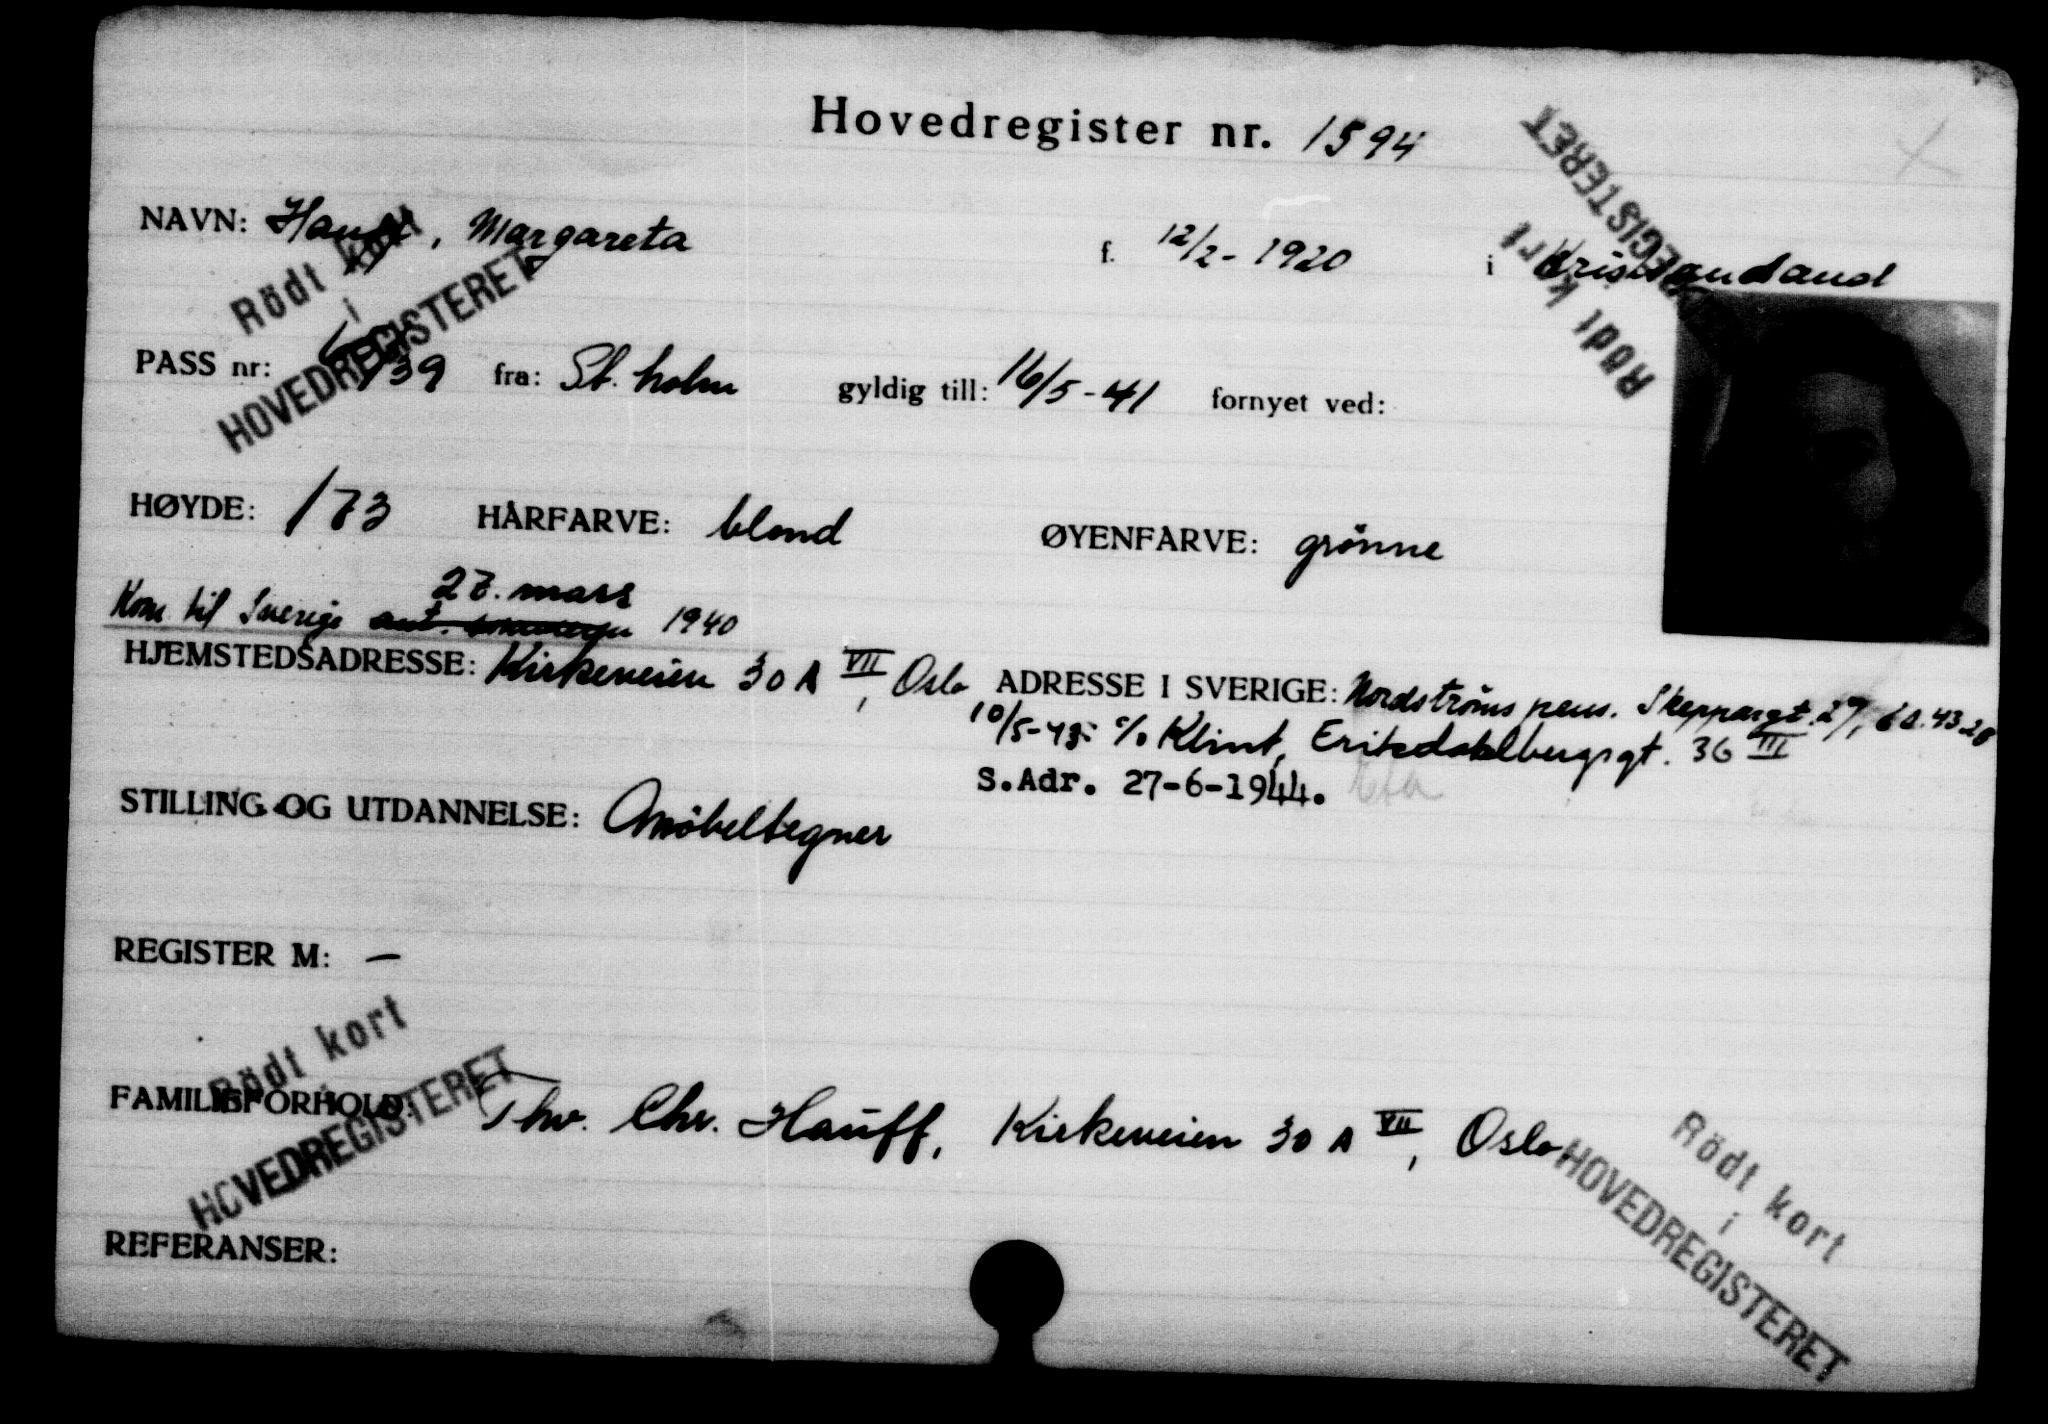 Hovedregister nr. 1594
NAVN: Hauff, Margareta f. 12/2-1920 i Kristiansand
Rödt kort
i
HOVEDREGISTERET
Rödt kort
i
HOVEDREGISTERET
PASS nr: 39 fra: St.holm gyldig till: 16/5-41 fornyet ved:
HØYDE: 173 HÅRFARVE: blond ØYENFARVE: grönne
27. mars
Kom til Sverige 1940
HJEMSTEDSADRESSE: Kirkeveien 30 A VII, Oslo ADRESSE I SVERIGE: Nordströms pens. Skeppargt. 27, 60.43.28
10/5-43: c/o Klint, Erikdahlbergsgt. 36 III
S.Adr. 27-6-1944.
STILLING OG UTDANNELSE: Möbeltegner
REGISTER M: —
Rödt kort
i
HOVEDREGISTERET
FAMILIEFORHOLD: Thv. Chr. Hauff, Kirkeveien 30 A VII, Oslo.
Rödt kort
i
HOVEDREGISTERET
REFERANSER: